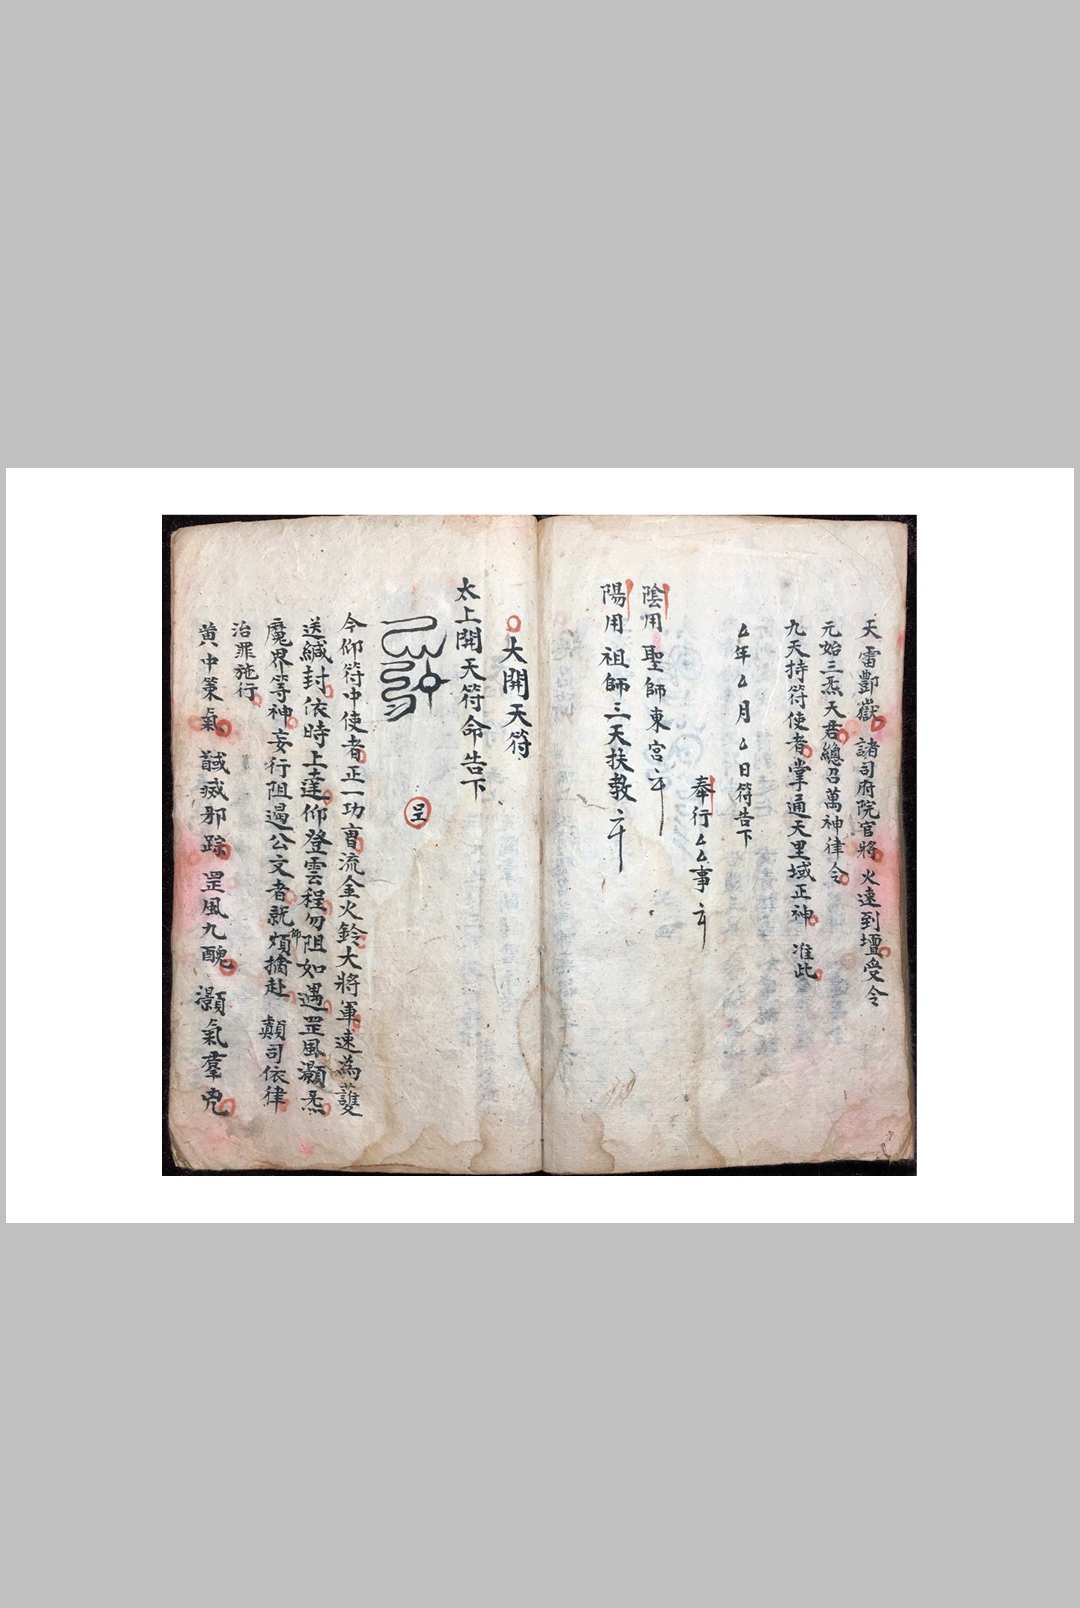 天雷酆嶽 諸司府院官將 火速到壇受令
元始三炁天君總召萬神律令
九天持符使者掌通天里域正神 准此
厶年厶月厶日符告下
奉行厶厶事
陰用 聖師東宮
陽用 祖師三天扶教
大開天符
太上開天符命告下
呈
今仰符中使者正一功曹流金火鈴大將軍速為護
送緘封依時上達仰登雲程勿阻如遇罡風灝炁
魔界等神妄行阻遏公文者就煩擒赴 顛司依律
治罪施行
黃中策氣 馘滅邪踪 罡風九醜 灝氣羣兇